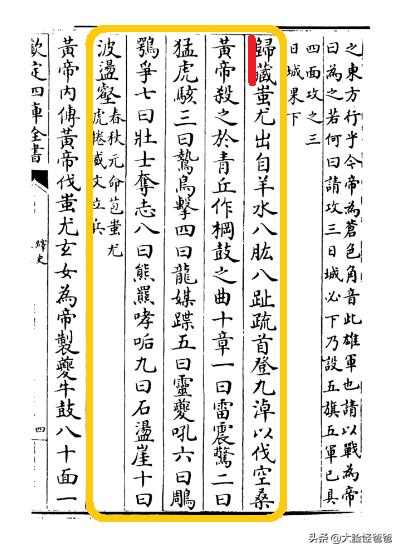 之東方行乎今帝為蒼色角音此雄軍也請以戰為帝
曰為之若何曰請攻三日城必下乃設五旗五軍已具
四面攻之三
日城果下
歸藏蚩尤出自羊水八肱八趾疏首登九淖以伐空桑
黃帝殺之於青丘作棡鼓之曲十章一曰雷震驚二曰
猛虎駭三曰鷙鳥擊四曰龍媒蹀五曰靈夔吼六曰鵰
鶚爭七曰壯士奪志八曰熊羆哮㖃九曰石盪崖十曰
波盪壑
春秋元命苞蚩尤
虎捲威文立兵
黃帝內傳黃帝伐蚩尤玄女為帝製夔牛鼓八十面一
欽定四庫全書
繹史
四
头条 @大脸怪爸爸